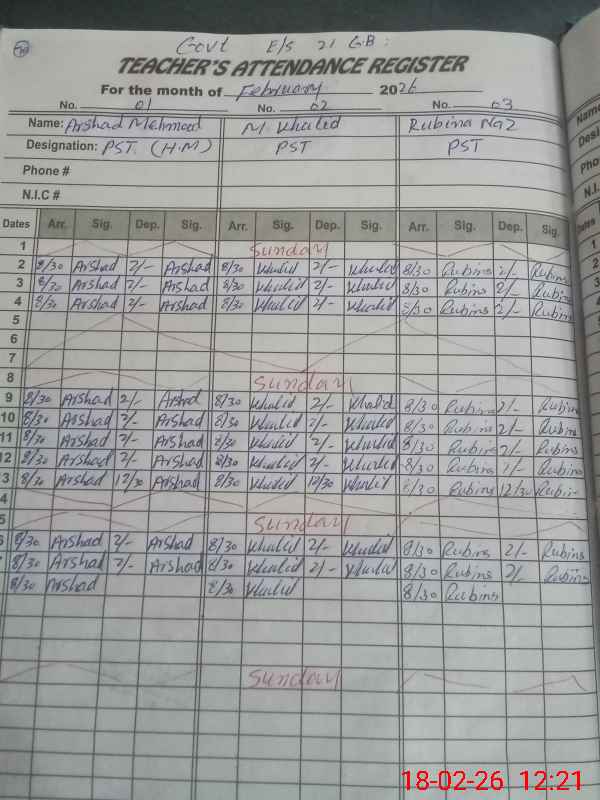 Govt E/S 21 G.B:
TEACHER'S ATTENDANCE REGISTER
For the month of February 2026
No. 01 No. 02 No. 03
Name: Arshad Mehmood M. Khalid Rubina Naz
Designation: PST (H.M) PST PST
Phone #
N.I.C #
Dates Arr. Sig. Dep. Sig. Arr. Sig. Dep. Sig. Arr. Sig. Dep. Sig.
1 Sunday
2 8/30 Arshad 2/- Arshad 8/30 Khalid 2/- Khalid 8/30 Rubina 2/- Rubina
3 8/30 Arshad 2/- Arshad 8/30 Khalid 2/- Khalid 8/30 Rubina 2/- Rubina
4 8/30 Arshad 2/- Arshad 8/30 Khalid 2/- Khalid 8/30 Rubina 2/- Rubina
5
6
7
8 Sunday
9 8/30 Arshad 2/- Arshad 8/30 Khalid 2/- Khalid 8/30 Rubina 2/- Rubina
10 8/30 Arshad 2/- Arshad 8/30 Khalid 2/- Khalid 8/30 Rubina 2/- Rubina
11 8/30 Arshad 2/- Arshad 8/30 Khalid 2/- Khalid 8/30 Rubina 2/- Rubina
12 8/30 Arshad 2/- Arshad 8/30 Khalid 2/- Khalid 8/30 Rubina 2/- Rubina
3 8/30 Arshad 12/30 Arshad 8/30 Khalid 12/30 Khalid 8/30 Rubina 12/30 Rubina
4
5 Sunday
8/30 Arshad 2/- Arshad 8/30 Khalid 2/- Khalid 8/30 Rubina 2/- Rubina
8/30 Arshad 2/- Arshad 8/30 Khalid 2/- Khalid 8/30 Rubina 2/- Rubina
8/30 Arshad 8/30 Khalid 8/30 Rubina
Sunday
18-02-26 12:21